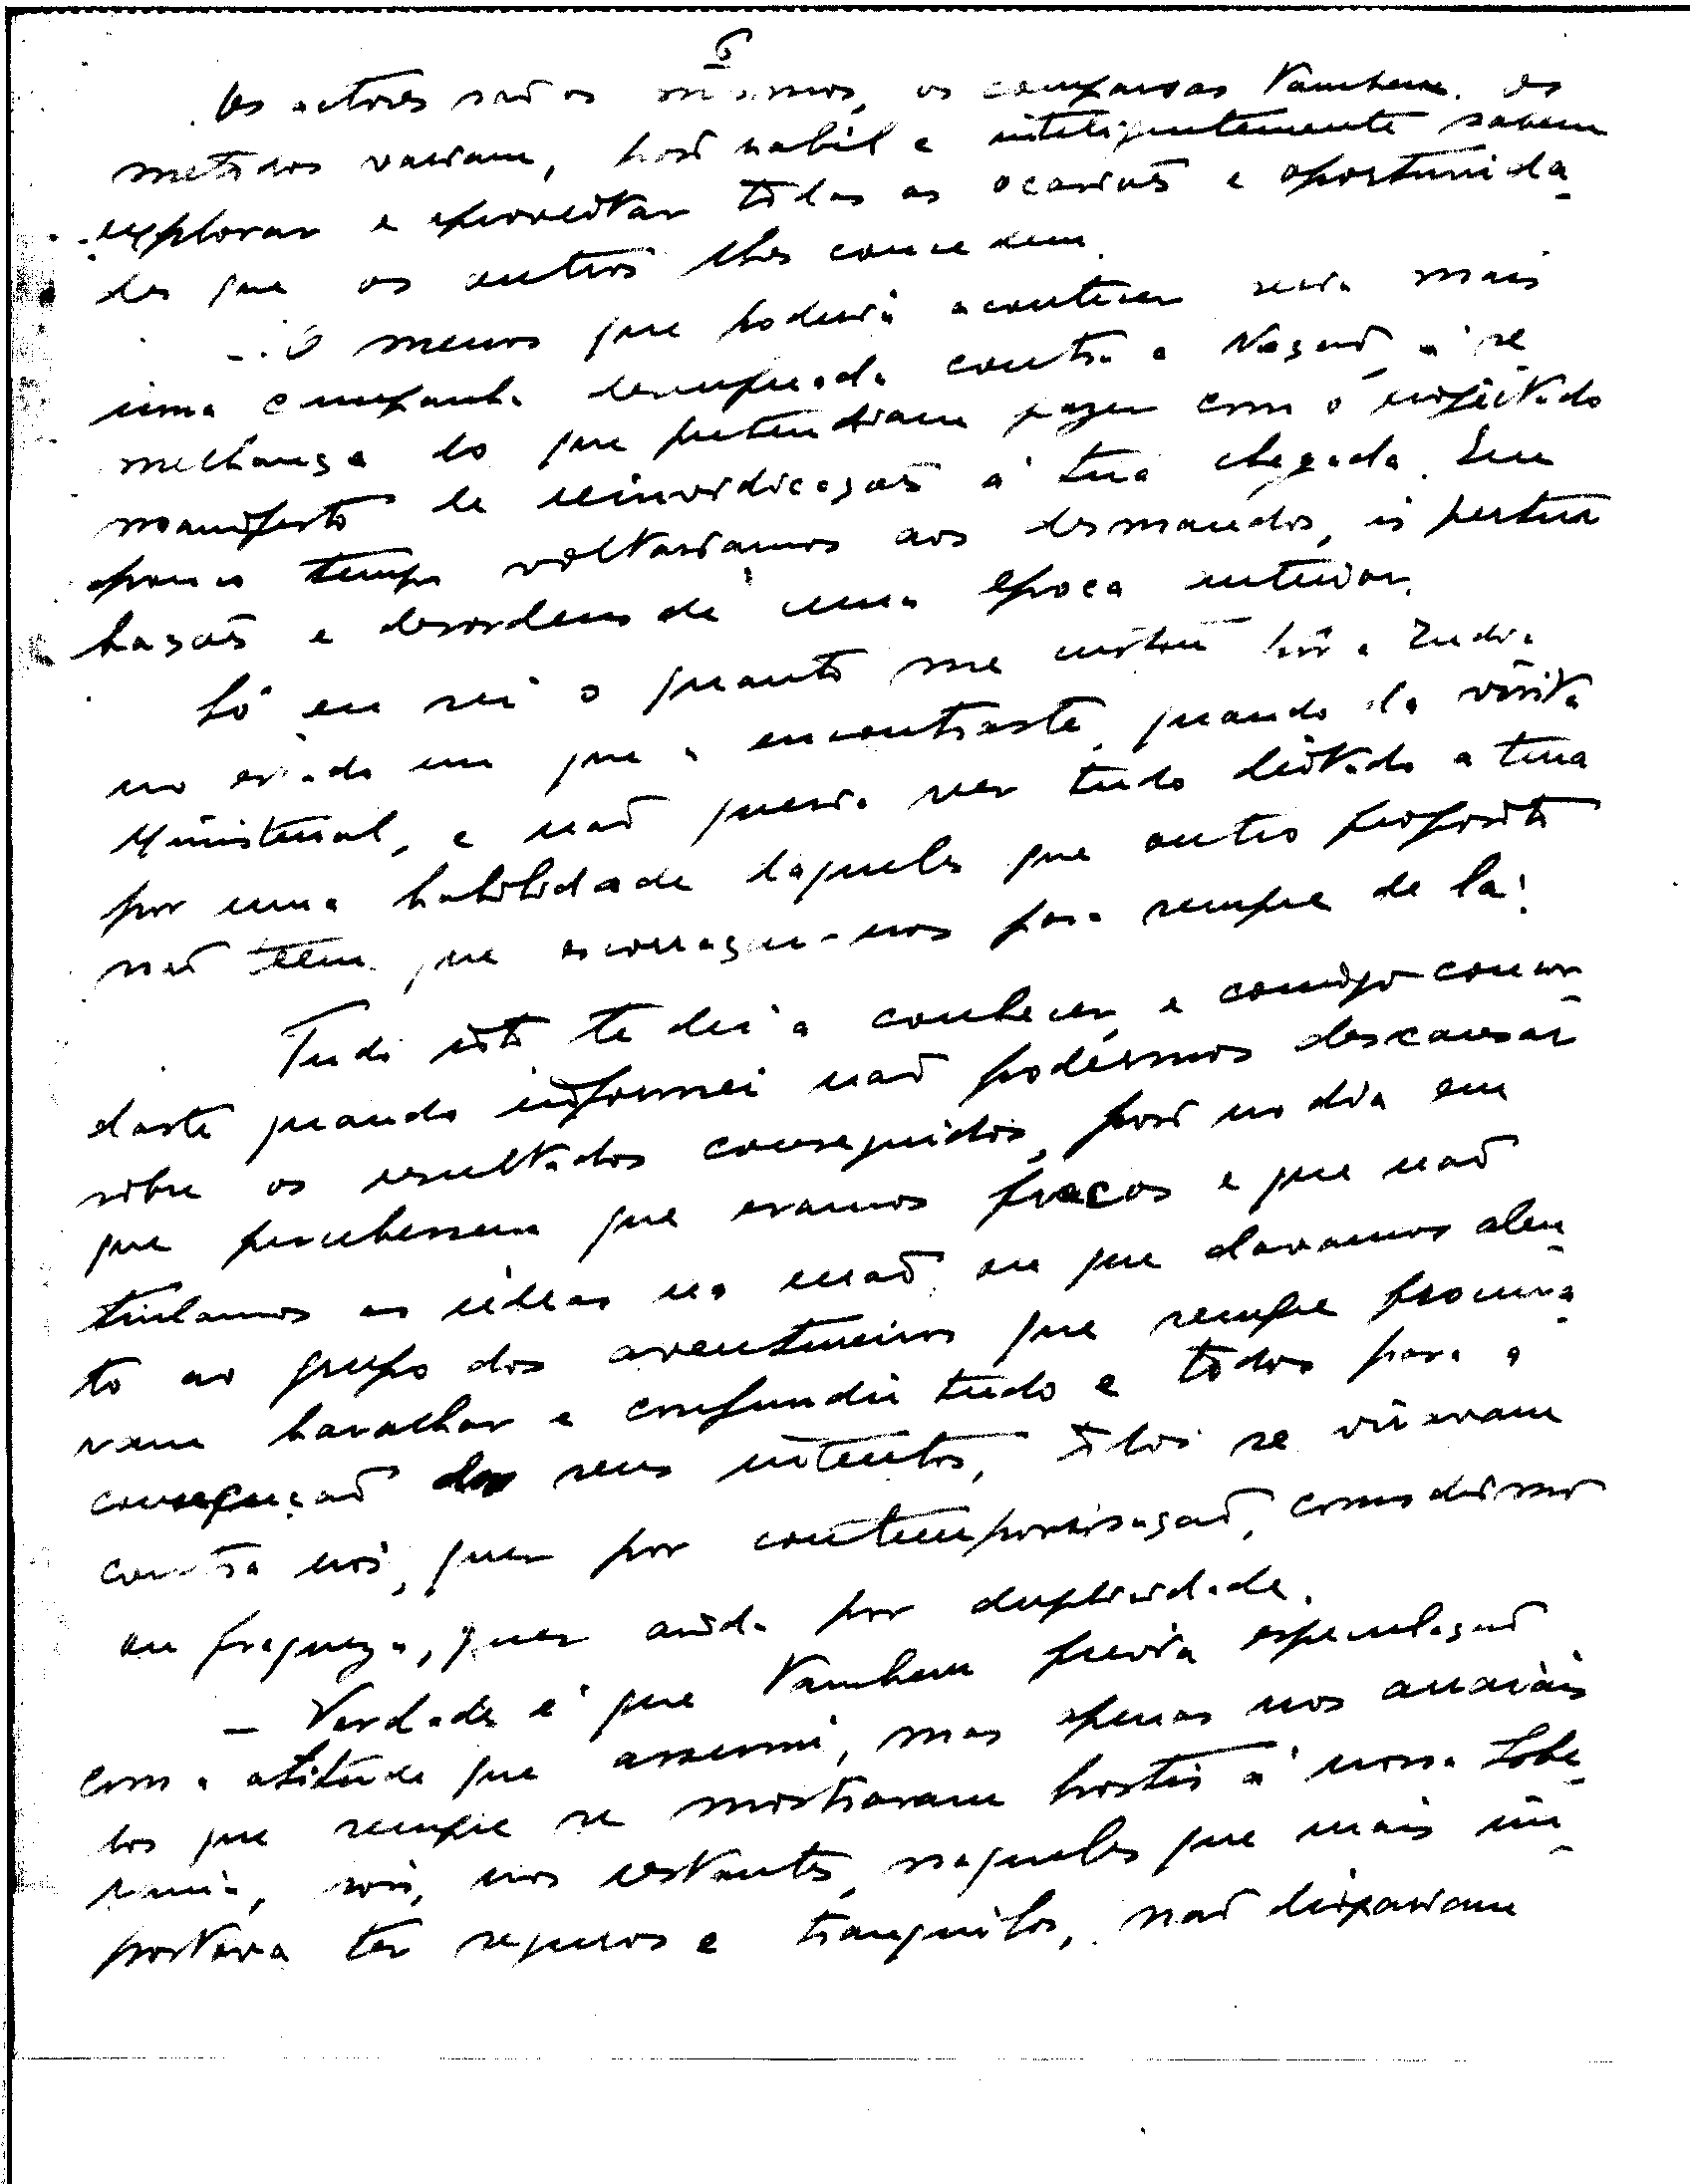 6
Os actores são os mesmos, os comparsas tambem. Os
metodos variam, pois habil e inteligentemente sabem
explorar e aproveitar tôdas as ocasiões e oportunida-
des que os outros lhes concedem.
- O menos que poderia acontecer seria mais
uma campanha desenfreada contra a Nação, á se-
melhança do que pretendiam fazer com o projectado
manifesto de reinvidicações á tua chegada. Em
pouco tempo voltariamos aos desmandos, ás pertur
bações e desordens de uma época anterior.
Só eu sei o quanto me custou pôr a India
no estado em que a encontraste, quando da visita
Ministerial, e não queria ver tudo deitado a terra
por uma habilidade daqueles que outro proposito
não teem que escorraçar-nos para sempre de lá!
Tudo isto te dei a conhecer, e comigo concor-
daste quando informei não podermos descansar
sôbre os resultados conseguidos, pois no dia em
que percebessem que eramos fracos e que não
tinhamos as rédeas na mão, ou que davamos alen-
to ao grupo dos aventureiros que sempre procura-
vam baralhar e confundir tudo e todos para a
consecução dos seus intentos, todos se virariam
contra nós, quer por contemporisação, comodismo
ou fraqueza, quer ainda por duplicidade.
- Verdade é que tambem previa especulação
com a atitude que assumi, mas apenas nos arraiais
dos que sempre se mostraram hostis á nossa Sobe-
rania, pois, nos restantes, naqueles que mais im-
portava ter seguros e tranquilos, não deixariam